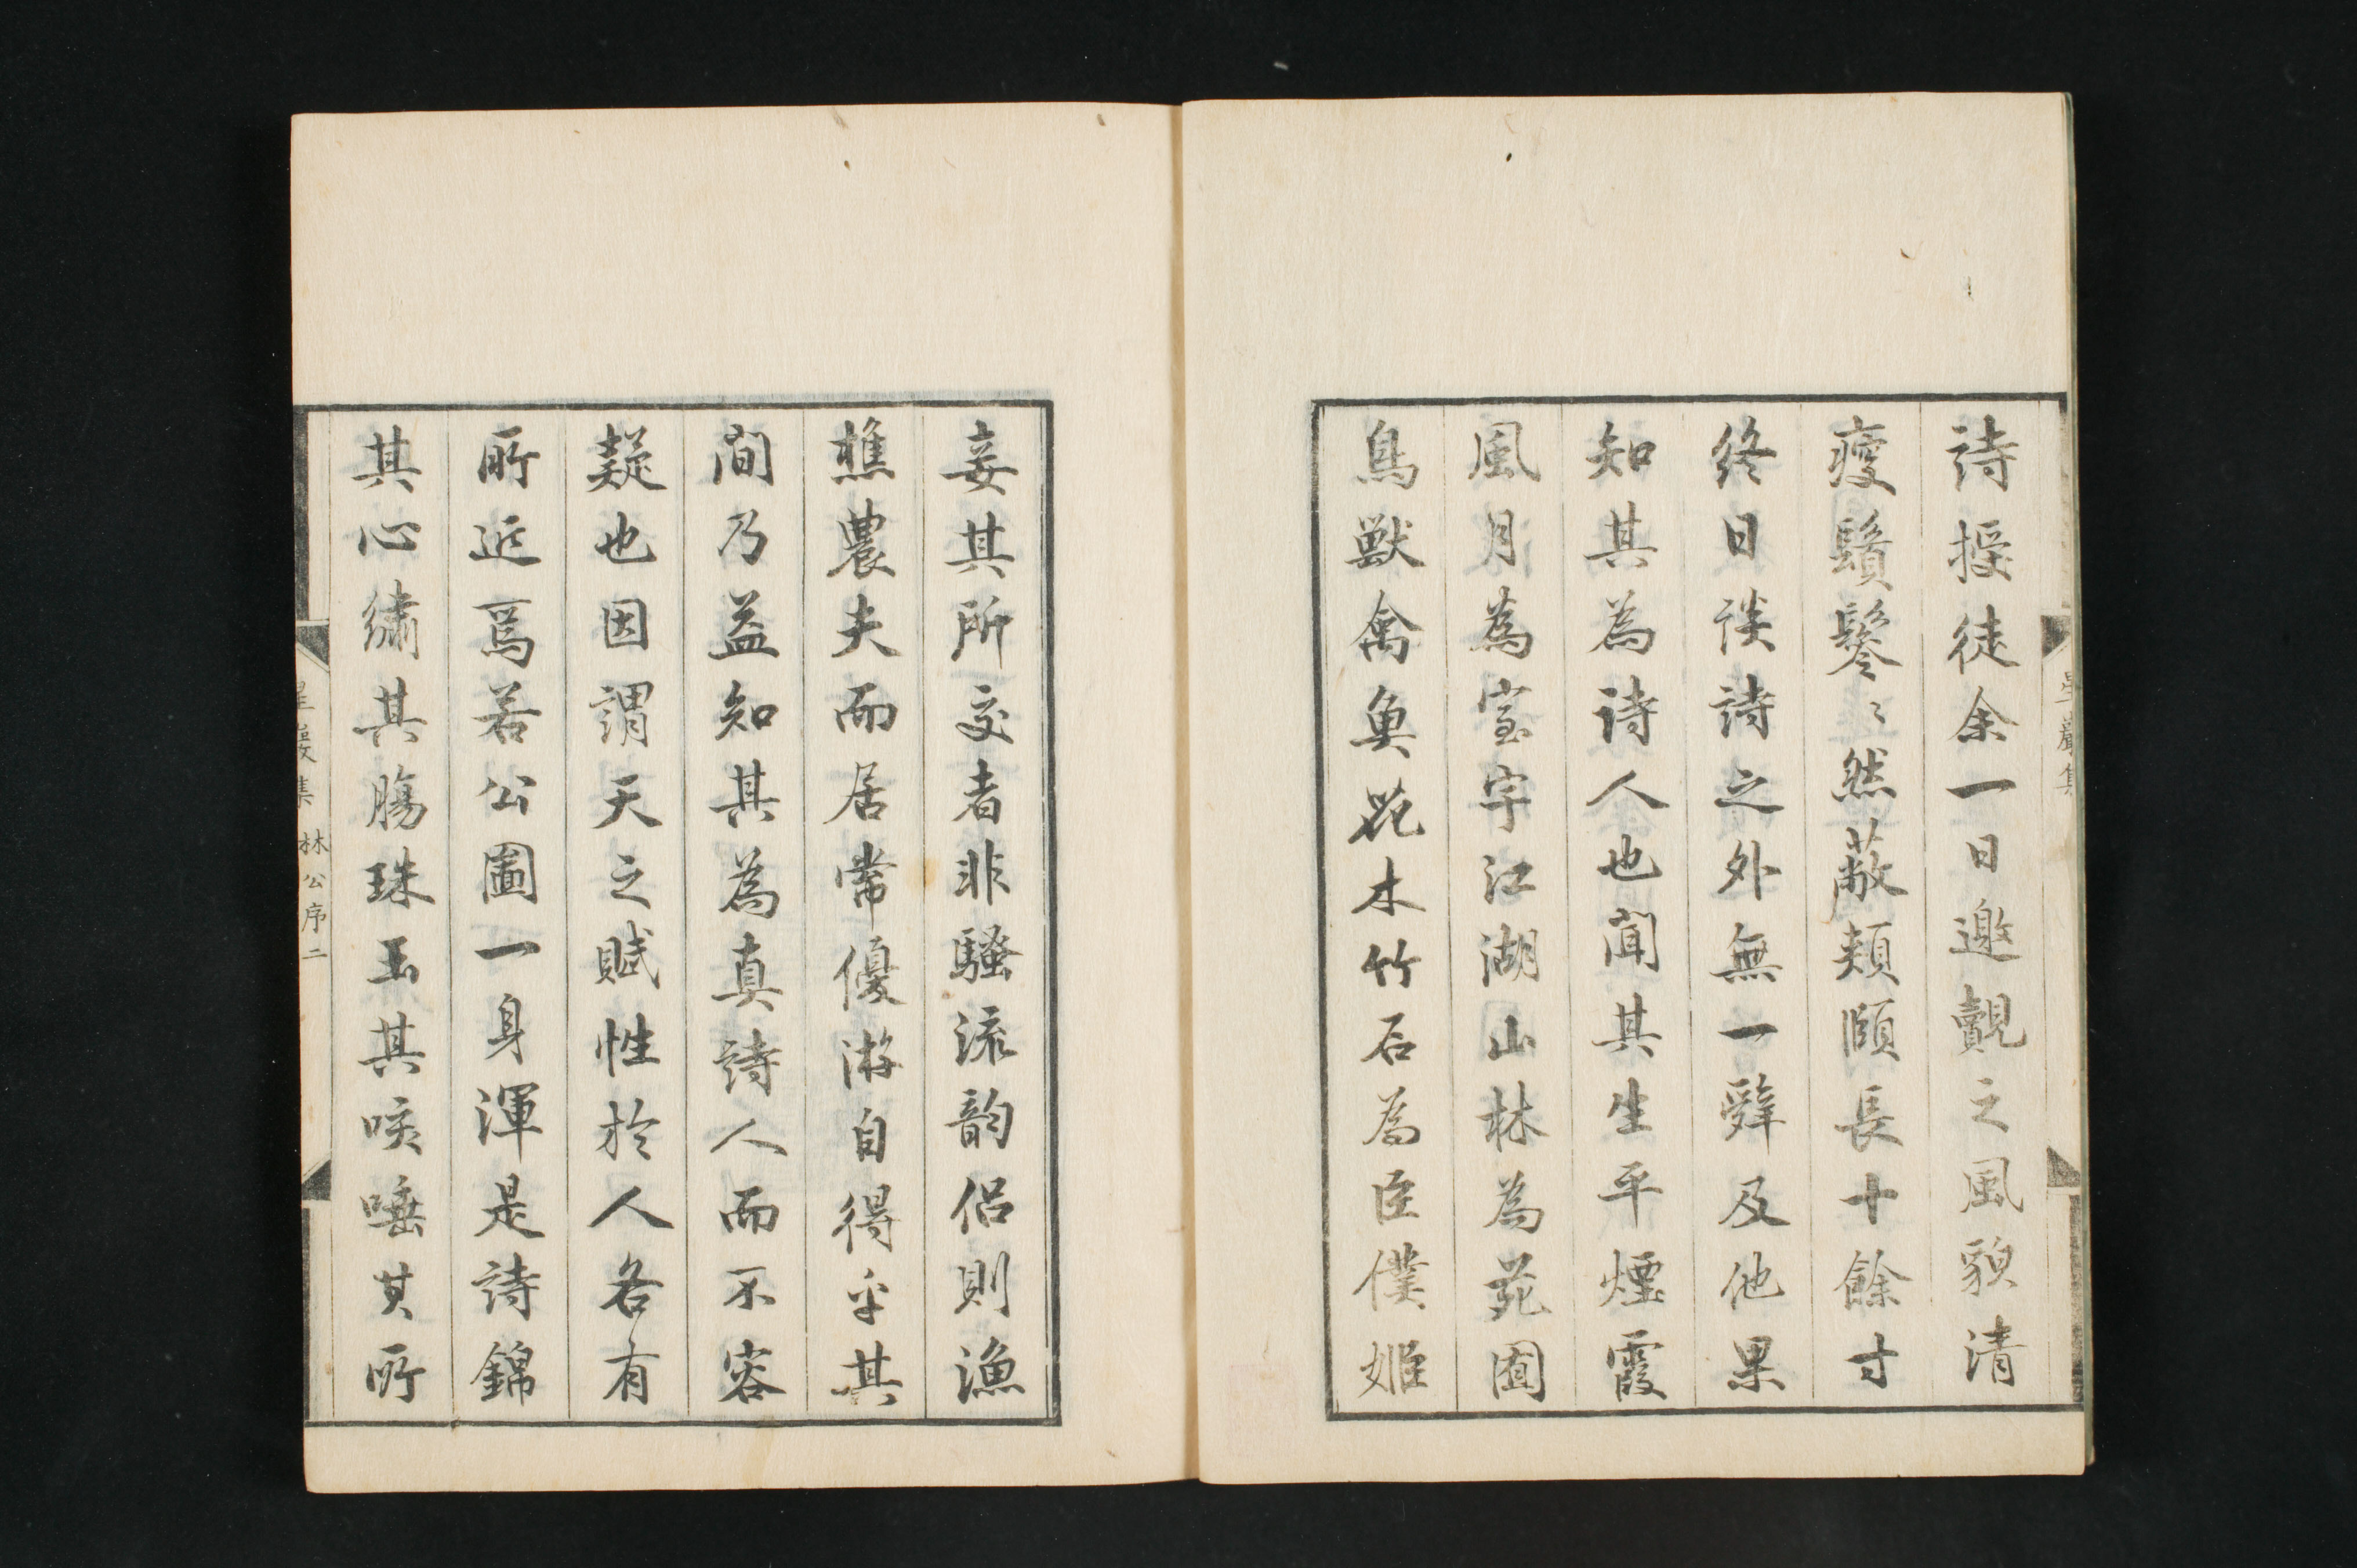 詩授徒余一日邀覿之風貌清
瘦鬚鬖〻然蔽頬頤長十餘寸
終日談詩之外無一辭及他果
知其為詩人也聞其生平煙霞
風月為室宇江湖山林為苑囿
鳥獣禽魚花木竹石為臣僕姬
星巖集
妾其所交者非騷流韵侶則漁
樵農夫而居常優游自得乎其
間乃益知其為真詩人而不容
疑也因謂天之賦性於人各有
所近焉若公圖一身渾是詩錦
其心繡其膓珠玉其咳唾其所
星巖集 林公序 二